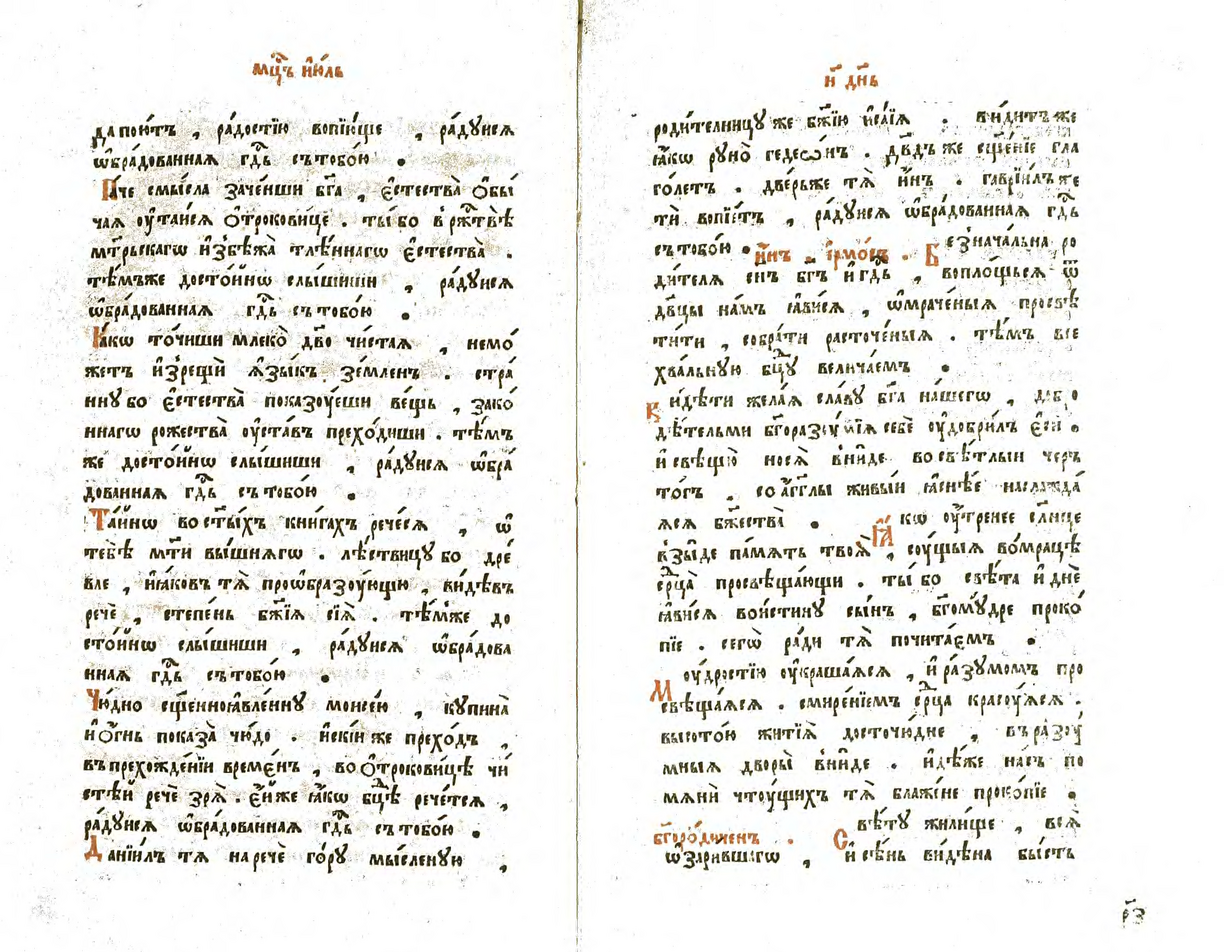 мц҃ъ и҆ю́ль
да пою́тъ , ра́достїю вопїю́ще , ра́дуися
ѡ҆бра́дованная гдⷭ҇ь съ тобо́ю .
Па́че смы́сла заче́нши бг҃а , є҆стества̀ ѻ҆бы́
чая ᲂу҆таи́ся ѻ҆трокови́це . ты́ бо в рж҃твѣ̀
мт҃рьскагѡ и҆збѣжа̀ тлѣ́ннагѡ є҆стества̀ .
тѣ́мъже досто́йнѡ слы́шиши , ра́дуися
ѡ҆бра́дованная гдⷭ҇ь съ тобо́ю .
Ка́кѡ то́чиши млеко̀ дв҃о чи́стая , немо́
жетъ и҆зрещѝ ѧ҆зы́къ зе́мленъ . стра́
ннꙋ бо є҆стества̀ показꙋ́еши ве́щь , зако́
ннагѡ рожества̀ ᲂу҆ста́въ прехо́диши . тѣ́мъ
же досто́йнѡ слы́шиши , ра́дуися ѡ҆бра́
дованная гдⷭ҇ь съ тобо́ю .
Та́йнѡ во ст҃ы́хъ кни́гахъ рече́ся , ѡ҆
тебѣ̀ мт҃и вы́шнягѡ . лѣ́ствицꙋ бо дре́
вле , и҆я́ковъ тѧ̀ проѡбразꙋ́ющꙋю , ви́дѣвъ
речѐ , степе́нь бж҃їѧ сїѧ̀ . тѣ́мже до
сто́йнѡ слы́шиши , ра́дуися ѡ҆бра́дова
нная гдⷭ҇ь съ тобо́ю .
Чю́дно сщ҃енноꙗвле́ннꙋ моисе́ю , кꙋпина̀
и҆ ѻ҆́гнь показа̀ чю́до . и҆скі́й же прехо́дъ ,
въ прехожде́нїи време́нъ , во ѻ҆трокови́цѣ чи́
стѣй речѐ зрѧ̀ . є҆́йже ꙗ҆́кѡ бц҃ѣ рече́тся ,
ра́дуися ѡ҆бра́дованная гдⷭ҇ь съ тобо́ю .
Данїи́лъ тѧ̀ наречѐ го́рꙋ мы́сленꙋю ,
и҃ дн҃ь
роди́телницꙋ же бж҃їю и҆са́їя . ви́дитъ же
ꙗ҆́кѡ рꙋно̀ гедеѡ́нъ . дв҃дъ же сщ҃е́нїе гла
го́летъ . две́рь же тѧ̀ и҆́нъ . гаврїи́лъ же
тѝ вопїе́тъ , ра́дуися ѡ҆бра́дованная гдⷭ҇ь
съ тобо́ю . и҆́нъ . є҆рмо́съ . Безнача́льна ро
ди́теля сн҃ъ бг҃ъ и҆ гдⷭ҇ь , вопло́щься ѿ
дв҃цы на́мъ ꙗ҆ви́ся , ѡ҆мраче́ныя просвѣ
ти́ти , собра́ти расточе́ныя . тѣ́мъ все
хва́льнꙋю бц҃ꙋ велича́емъ .
Ви́дѣти жела́я сла́вꙋ бг҃а на́шегѡ , добро
дѣ́тельми бг҃оразꙋ́мїя себѐ ᲂу҆до́брилъ є҆сѝ .
и҆ свѣщꙋ̀ нося̀ вни́де во свѣ́тлыи чер
то́гъ , со а҆́гг҃лы живы́и ꙗ҆снѣ́е наслажда́
яся бж҃ества̀ . Ꙗ҆́кѡ ᲂу҆́тренее сл҃нце
взы́де па́мять твоѧ̀ , сꙋ́щыя во мра́цѣ
ср҃ца̀ просвѣща́ющи . ты́ бо свѣ́та и҆ днѐ
ꙗ҆ви́ся вои́стинꙋ сы́нъ , бг҃омꙋ́дре проко́
пїе . сегѡ̀ ра́ди тѧ̀ почита́емъ .
Мꙋ́дростїю ᲂу҆краша́яся , и҆ ра́зꙋмомъ про
свѣща́яся . смире́нїемъ ср҃ца̀ красꙋ́яся .
высото́ю житїѧ̀ досточю́дне , въ разꙋ́
мныя дворы̀ вни́де . и҆дѣ́же на́съ по
мянѝ чтꙋ́щихъ тѧ̀ блаже́не проко́пїе .
бг҃оро́диченъ . Свѣ́тꙋ жили́ще , вся̀
ѡ҆зари́вшагѡ , и҆ сѣ́нь ви́дѣна бы́сть
р҃з